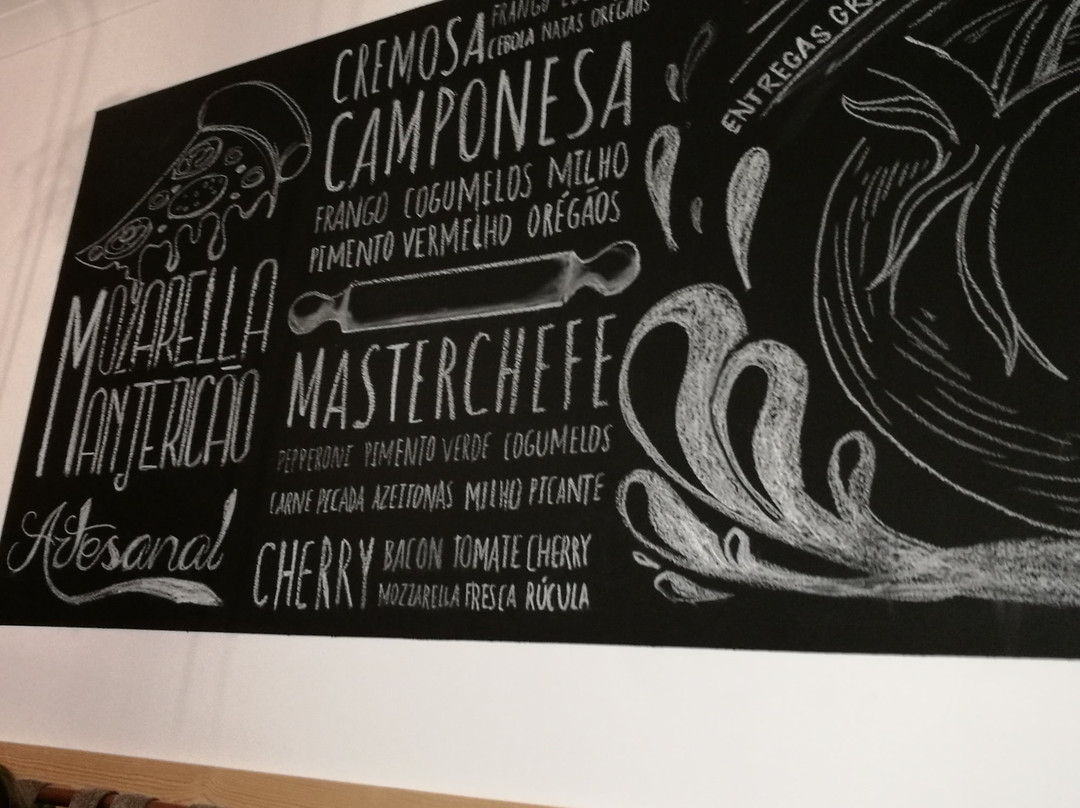 MOZARELLA
MANJERICÃO
Artesanal
CREMOSA
FRANGO
CEBOLA NATAS ORÉGÃOS
CAMPONESA
FRANGO COGUMELOS MILHO
PIMENTO VERMELHO ORÉGÃOS
MASTERCHEFE
PEPPERONI PIMENTO VERDE COGUMELOS
CARNE PICADA AZEITONAS MILHO PICANTE
CHERRY
BACON TOMATE CHERRY
MOZZARELLA FRESCA RÚCULA
ENTREGAS